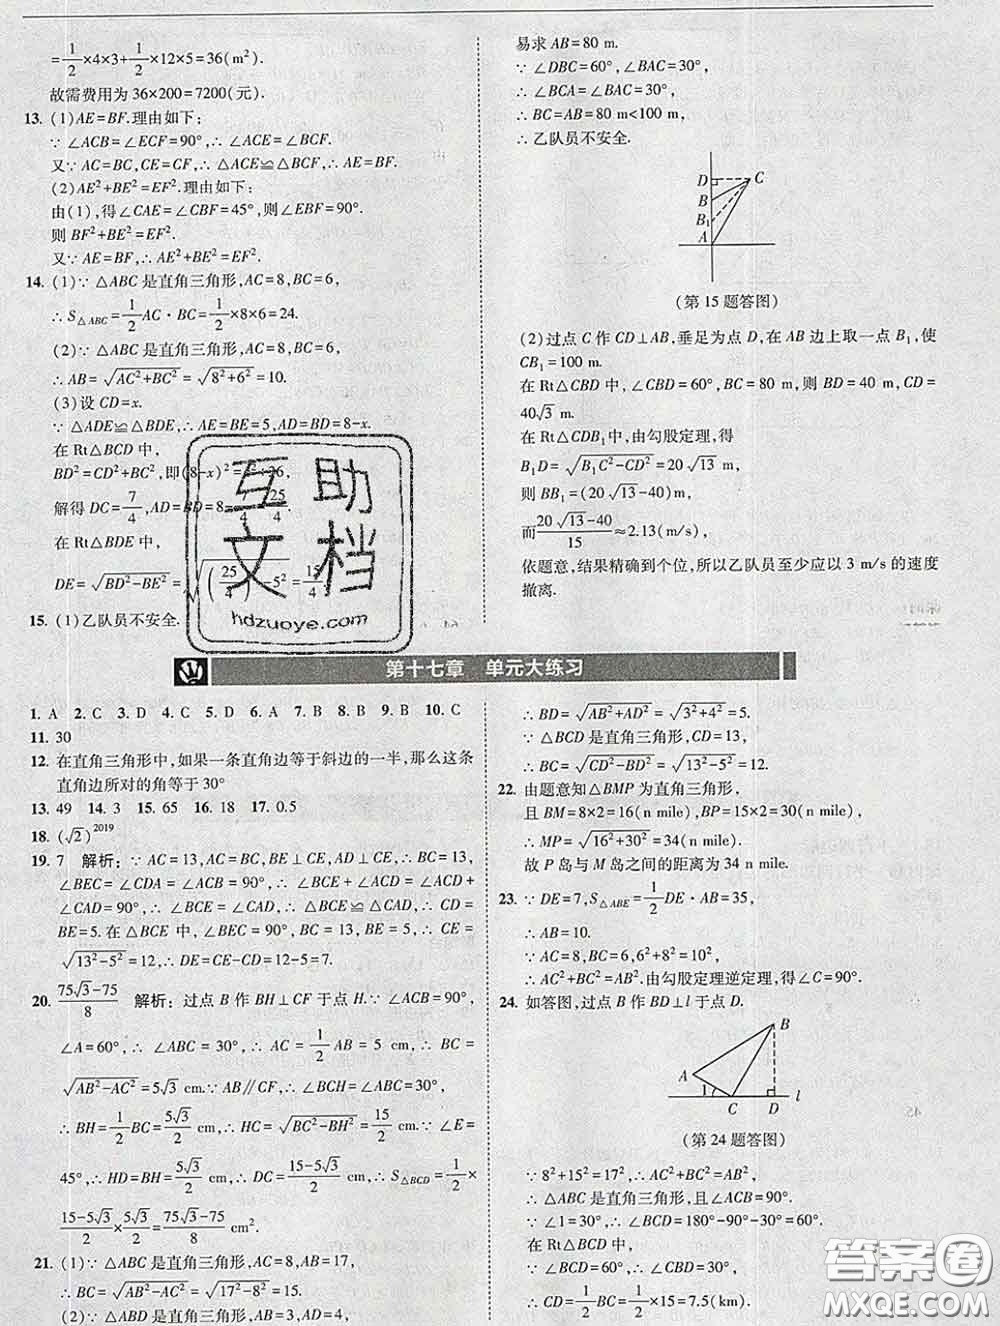 =1/2×4×3+1/2×12×5=36(m²).
故需费用为 36×200=7200(元).
13. (1)AE=BF.理由如下:
∵ ∠ACB=∠ECF=90°,∴ ∠ACE=∠BCF.
又∵ AC=BC,CE=CF,∴ △ACE≌△BCF,∴ AE=BF.
(2)AE²+BE²=EF².理由如下:
由(1),得∠CAE=∠CBF=45°,则∠EBF=90°.
则 BF²+BE²=EF².
又∵ AE=BF,∴ AE²+BE²=EF².
14. (1)∵ △ABC 是直角三角形,AC=8,BC=6,
∴ S△ABC=1/2AC·BC=1/2×8×6=24.
(2)∵ △ABC 是直角三角形,AC=8,BC=6,
∴ AB=√(AC²+BC²)=√(8²+6²)=10.
(3)设 CD=x.
∵ △ADE≌△BDE,∴ AE=BE=5,AD=BD=8-x.
在 Rt△BCD 中,
BD²=CD²+BC²,即(8-x)²=
解得 DC=7/4,AD=BD=8-7/4=25/4.
在 Rt△BDE 中,
DE=√(BD²-BE²)=√((25/4)²-5²)=15/4.
15. (1)乙队员不安全.
易求 AB=80 m.
∵ ∠DBC=60°,∠BAC=30°,
∴ ∠BCA=∠BAC=30°,
∴ BC=AB=80 m<100 m,
∴ 乙队员不安全.
D C
B
B₁
A
(第 15 题答图)
(2)过点 C 作 CD⊥AB,垂足为点 D,在 AB 边上取一点 B₁,使
CB₁=100 m.
在 Rt△CBD 中,∠CBD=60°,BC=80 m,则 BD=40 m,CD=
40√3 m.
在 Rt△CDB₁中,由勾股定理,得
B₁D=√(B₁C²-CD²)=20√13 m,
则 BB₁=(20√13-40)m,
而(20√13-40)/15≈2.13(m/s),
依题意,结果精确到个位,所以乙队员至少应以 3 m/s 的速度
撤离.
互助
文档
hdzuoye.com
第十七章 单元大练习
1. A 2. C 3. D 4. C 5. D 6. A 7. B 8. B 9. B 10. C
11. 30
12. 在直角三角形中,如果一条直角边等于斜边的一半,那么这条
直角边所对的角等于 30°
13. 49 14. 3 15. 65 16. 18 17. 0.5
18. (√2)²⁰¹⁹
19. 7 解析:∵ AC=13,AC=BC,BE⊥CE,AD⊥CE,∴ BC=13,
∠BEC=∠CDA=∠ACB=90°,∴ ∠BCE+∠ACD=∠ACD+
∠CAD=90°,∴ ∠BCE=∠CAD,∴ △BCE≌△CAD,∴ CD=
BE=5.在△BCE 中,∠BEC=90°,BC=13,BE=5,∴ CE=
√(13²-5²)=12,∴ DE=CE-CD=12-5=7.
20. (75√3-75)/8 解析:过点 B 作 BH⊥CF 于点 H.∵ ∠ACB=90°,
∠A=60°,∴ ∠ABC=30°,∴ AC=1/2AB=5 cm,∴ BC=
√(AB²-AC²)=5√3 cm.∵ AB∥CF,∴ ∠BCH=∠ABC=30°,
∴ BH=1/2BC=5√3/2 cm,∴ HC=√(BC²-BH²)=15/2 cm.∵ ∠E=
45°,∴ HD=BH=5√3/2 cm,∴ DC=(15-5√3)/2 cm,∴ S△BCD=1/2×
(15-5√3)/2×5√3/2=(75√3-75)/8 cm².
21. (1)∵ △ABC 是直角三角形,AC=8,AB=17,
∴ BC=√(AB²-AC²)=√(17²-8²)=15.
(2)∵ △ABC 是直角三角形,AB=3,AD=4,
∴ BD=√(AB²+AD²)=√(3²+4²)=5.
∵ △BCD 是直角三角形,CD=13,
∴ BC=√(CD²-BD²)=√(13²-5²)=12.
22. 由题意知△BMP 为直角三角形,
且 BM=8×2=16(n mile),BP=15×2=30(n mile),
∴ MP=√(16²+30²)=34(n mile).
故 P 岛与 M 岛之间的距离为 34 n mile.
23. ∵ DE=7,S△ABE=1/2DE·AB=35,
∴ AB=10.
∵ AC=8,BC=6,6²+8²=10²,
∴ AC²+BC²=AB².由勾股定理逆定理,得∠C=90°.
24. 如答图,过点 B 作 BD⊥l 于点 D.
B
A
1
C D l
(第 24 题答图)
∵ 8²+15²=17²,∴ AC²+BC²=AB²,
∴ △ABC 是直角三角形,且∠ACB=90°.
∵ ∠1=30°,∴ ∠BCD=180°-90°-30°=60°.
在 Rt△BCD 中,
∵ ∠BCD=60°,∴ ∠CBD=30°,
∴ CD=1/2BC=1/2×15=7.5(km).
答案圈
MXQE.COM